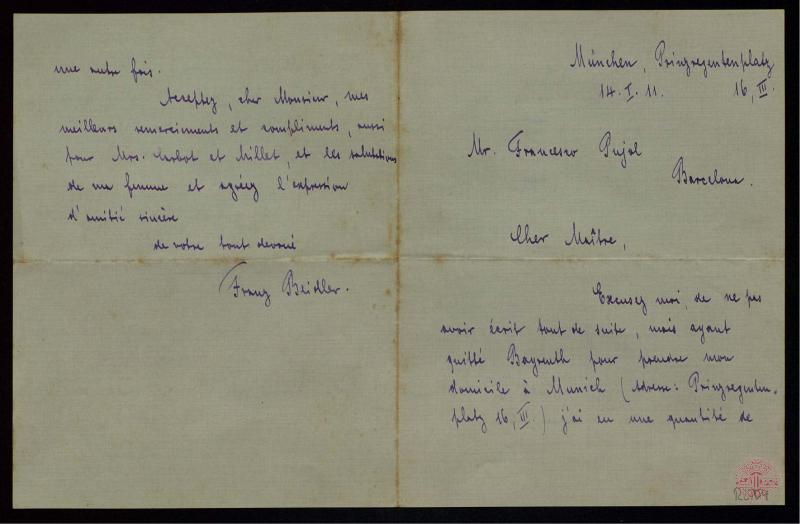 München, Prinzregentenplatz
14. I. 11. 16, III.
Mr. Francesco Pujol
Barcelone.
Cher Maître,
Excusez moi, de ne pas
avoir écrit tout de suite, mais ayant
quitté Bayreuth pour prendre mon
domicile à Munich (Adresse: Prinzregenten-
platz 16, III.) j'ai eu une quantité de
une autre fois.
Acceptez, cher Monsieur, mes
meilleurs remerciments et compliments, aussi
pour Mrs. et Millet, et les salutations
de ma femme et agréez l'expression
d'amitié sincère
de votre tout dévoué
Franz Beidler.